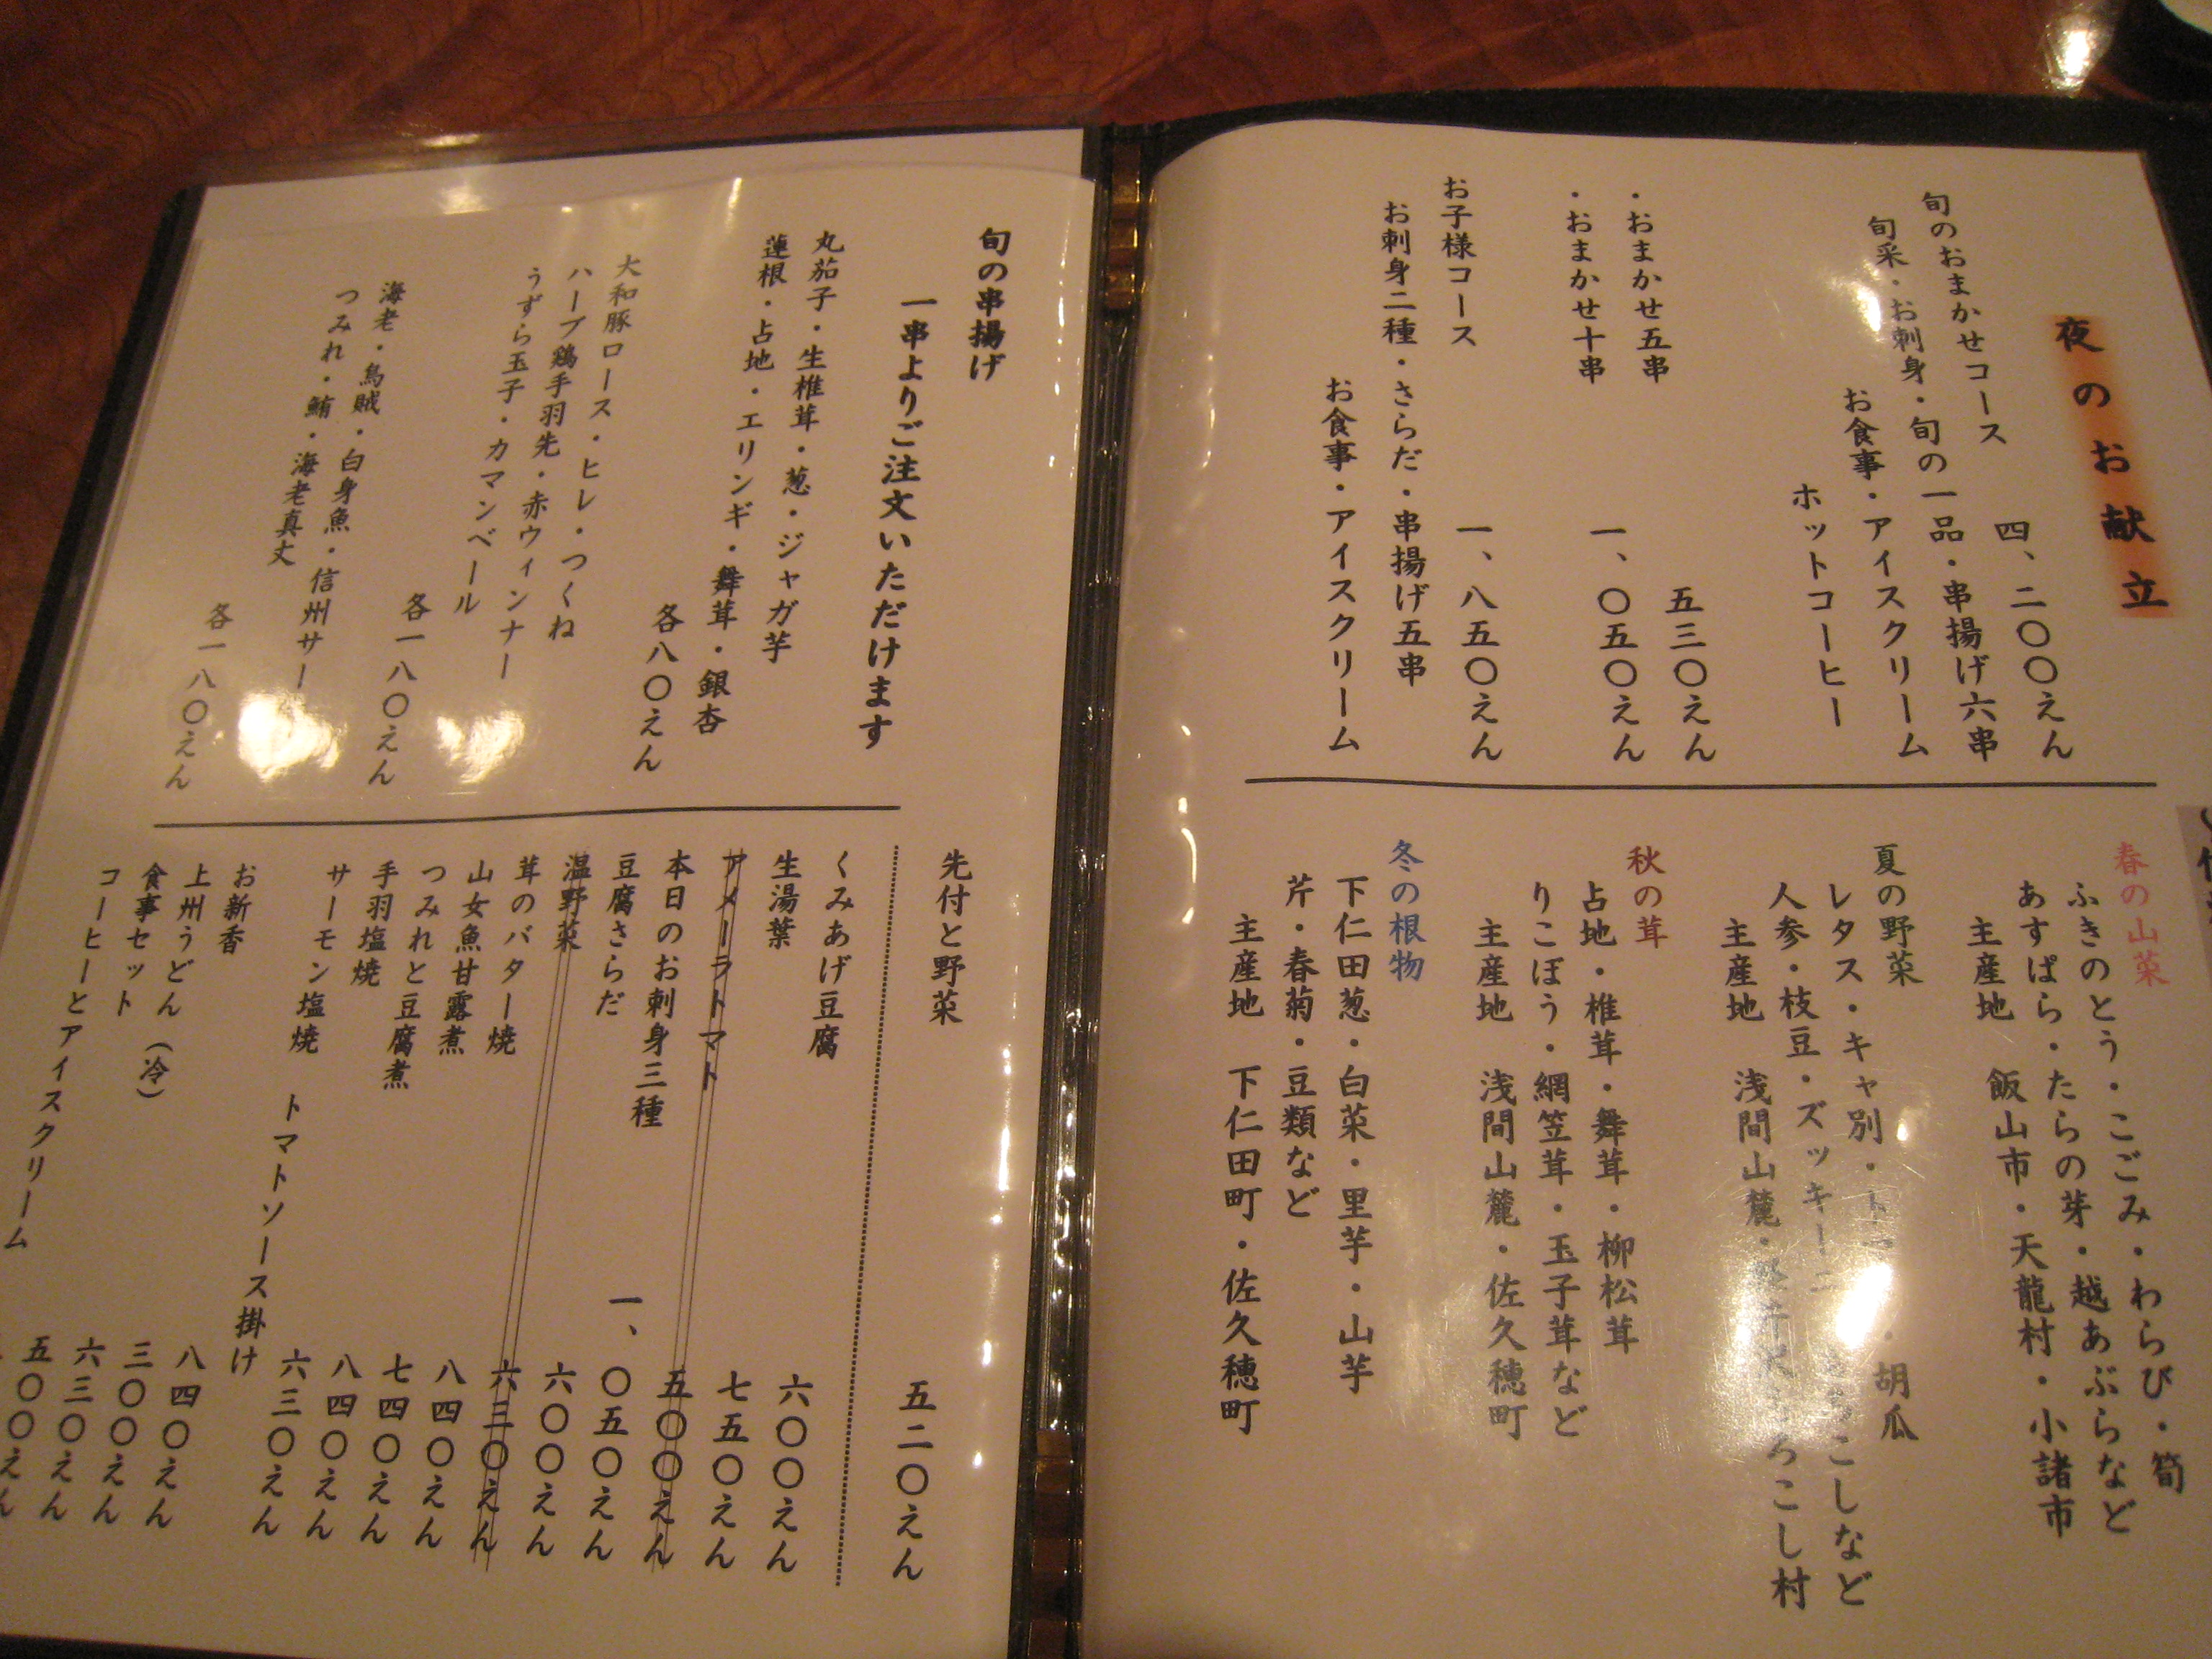 夜のお献立
旬のおまかせコース 四、二〇〇えん
旬采・お刺身・旬の一品・串揚げ六串
お食事・アイスクリーム
ホットコーヒー
・おまかせ五串 五三〇えん
・おまかせ十串 一、〇五〇えん
お子様コース 一、八五〇えん
お刺身二種・さらだ・串揚げ五串
お食事・アイスクリーム
春の山菜
ふきのとう・こごみ・わらび・筍
あすぱら・たらの芽・越あぶらなど
主産地 飯山市・天龍村・小諸市
夏の野菜
レタス・キャ別・胡瓜
人参・枝豆・ズッキーニ こしなど
主産地 浅間山麓・ こし村
秋の茸
占地・椎茸・舞茸・柳松茸
りこぼう・網笠茸・玉子茸など
主産地 浅間山麓・佐久穂町
冬の根物
下仁田葱・白菜・里芋・山芋
芹・春菊・豆類など
主産地 下仁田町・佐久穂町
旬の串揚げ
一串よりご注文いただけます
丸茄子・生椎茸・葱・ジャガ芋
蓮根・占地・エリンギ・舞茸・銀杏
各八〇えん
大和豚ロース・ヒレ・つくね
ハーブ鶏手羽先・赤ウィンナー
うずら玉子・カマンベール
各一八〇えん
海老・烏賊・白身魚・信州サー
つみれ・鮪・海老真丈
各一八〇えん
先付と野菜 五二〇えん
くみあげ豆腐 六〇〇えん
生湯葉 七五〇えん
アメーラトマト 五〇〇えん
本日のお刺身三種 一、〇五〇えん
豆腐さらだ 六〇〇えん
温野菜 六三〇えん
茸のバター焼 八四〇えん
山女魚甘露煮 七四〇えん
つみれと豆腐煮 八四〇えん
手羽塩焼 六三〇えん
サーモン塩焼 トマトソース掛け 八四〇えん
お新香 三〇〇えん
上州うどん（冷） 六三〇えん
食事セット 五〇〇えん
コーヒーとアイスクリーム